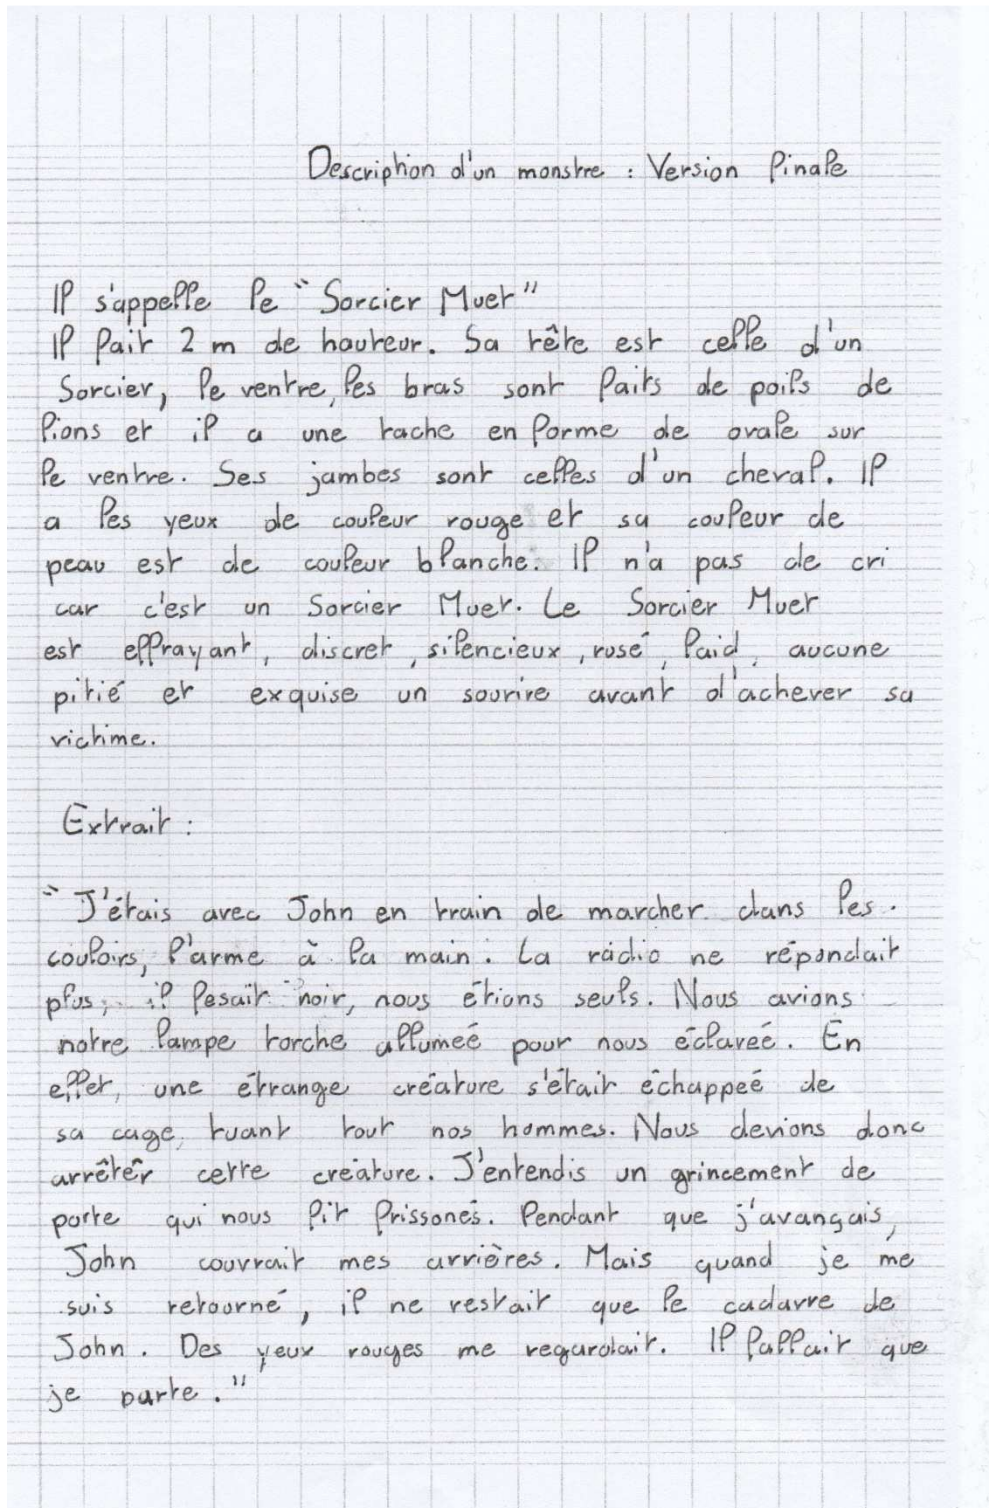 Description d'un monstre : Version finale
Il s'appelle le "Sorcier Muet"
Il fait 2 m de hauteur. Sa tête est celle d'un
Sorcier, le ventre, les bras sont faits de poils de
lions et il a une tache en forme de ovale sur
le ventre. Ses jambes sont celles d'un cheval. Il
a les yeux de couleur rouge et sa couleur de
peau est de couleur blanche. Il n'a pas de cri
car c'est un Sorcier Muet. Le Sorcier Muet
est effrayant, discret, silencieux, rusé, laid, aucune
pitié et exquise un sourire avant d'achever sa
victime.
Extrait :
"J'étais avec John en train de marcher dans les
couloirs, l'arme à la main. La radio ne répondait
plus, il fesait noir, nous étions seuls. Nous avions
notre lampe torche allumeé pour nous éclareé. En
effet, une étrange créature s'était échappeé de
sa cage, tuant tout nos hommes. Nous devions donc
arrêtêr cette créature. J'entendis un grincement de
porte qui nous fit frissonés. Pendant que j'avançais,
John couvrait mes arrières. Mais quand je me
suis retourné, il ne restait que le cadavre de
John. Des yeux rouges me regardait. Il fallait que
je parte."